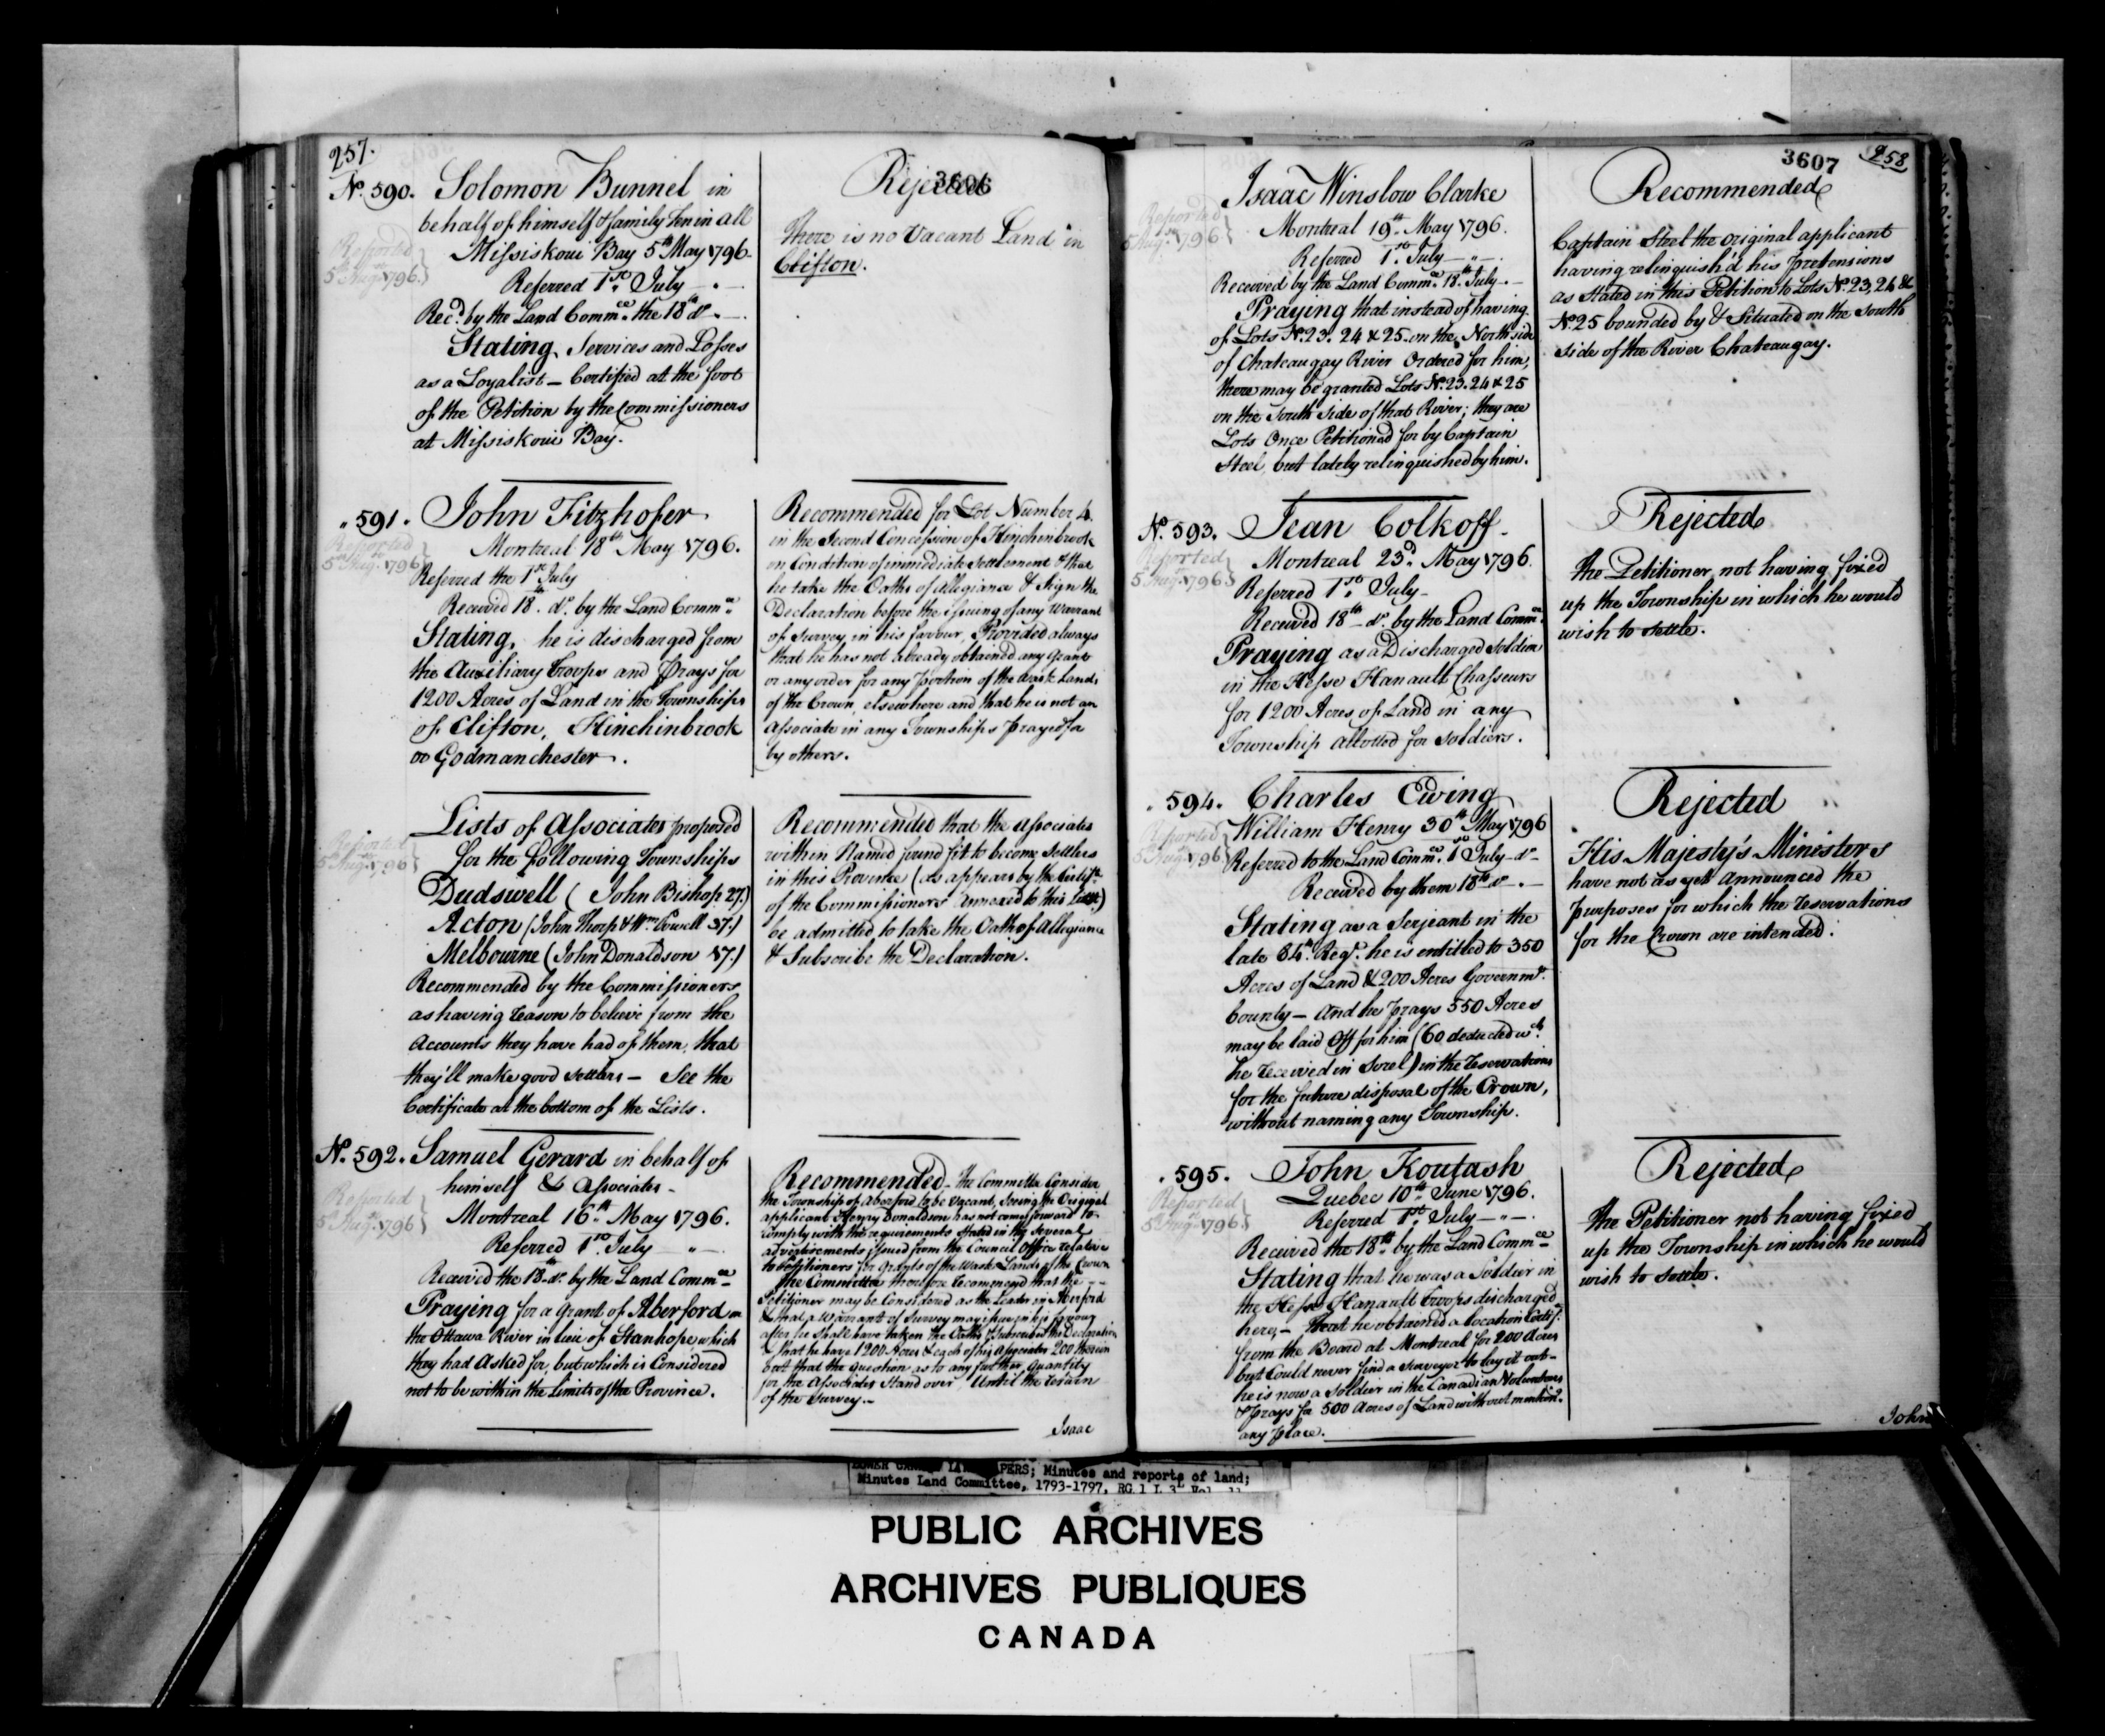 257.
3606
Nº 590. Solomon Bunnel in
behalf of himself & family ten in all
Reported
5th Augt 1796.
Missiskoui Bay 5th May 1796.
Referred 1st July — . —
Recd. by the Land Commee. the 18th do. — .
Stating, Services and Losses
as a Loyalist — Certified at the foot
of the Petition by the Commissioners
at Missiskoui Bay.
Rejected
There is no Vacant Land in
Clifton.
" 591. John Fitzhofer
Reported
5th Augt. 1796
Montreal 18th May 1796.
Referred the 1st July
Received 18th. do. by the Land Commee.
Stating, he is discharged from
the Auxiliary Troops and prays for
1200 Acres of Land in the Townships
of Clifton, Hinchinbrook
or Godmanchester.
Recommended for Lot Number 4.
in the Second Concession of Hinchinbrook
on Condition of immediate Settlement & that
he take the Oaths of Allegiance & Sign the
Declaration before the issuing of any Warrant
of Survey in his favour, Provided always
that he has not already obtained any Grant
or any order for any portion of the Waste Lands
of the Crown, elsewhere and that he is not an
Associate in any Townships prayed for
by others.
Lists of Associates proposed
for the following Townships
Reported
5th Augt. 1796
Dudswell ( John Bishop 27.)
Acton (John Thorp & Wm. Powell 37.)
Melbourne (John Donaldson 17.)
Recommended by the Commissioners
as having reason to believe from the
Accounts they have had of them, that
they'll make good Settlers — See the
Certificate at the bottom of the Lists.
Recommended that the Associates
within Named found fit to become Settlers
in this Province (as appears by the Certife.
of the Commissioners annexed to this List)
be admitted to take the Oath of Allegiance
& Subscribe the Declaration.
Nº. 592. Samuel Gerard in behalf of
himself & Associates —
Reported
5th Augt. 1796
Montreal 16th. May 1796.
Referred 1st. July — " —
Received the 18th do. by the Land Commee.
Praying for a Grant of Aberford on
the Ottawa River in lieu of Stanhope which
they had asked for, but which is Considered
not to be within the Limits of the Province.
Recommended — The Committee Consider
the Township of Aberford to be Vacant, Seeing the Original
applicant Henry Donaldson has not come forward to
comply with the requirements Stated in the several
advertisements issued from the Council Office relative
to Petitioners for Grants of the Waste Lands of the Crown
The Committee therefore recommend that the — —
Petitioner may be Considered as the Leader in Aberford
& that a Warrant of Survey may issue in his favour
after he Shall have taken the Oaths & Subscribed the Declaration
& that he have 1200 Acres & each of his Associates 200 therein
but that the question as to any further quantity
for the Associates Stand over, Until the return
of the Survey. —
Isaac
3607 258
Isaac Winslow Clarke
Reported
5 Augt. 1796
Montreal 19th. May 1796.
Referred 1st. July — " — .
Received by the Land Commee. 18th. July . —
Praying that instead of having
of Lots Nº. 23. 24 & 25. on the North side
of Chateaugay River Ordered for him,
there may be granted Lots Nº. 23. 24 & 25
on the South Side of that River; they are
Lots Once Petitioned for by Captain
Steel, but lately relinquished by him.
Recommended
Captain Steel the original applicant
having relinquish'd his pretensions
as Stated in this Petition to Lots Nº. 23, 24 &
Nº. 25 bounded by & Situated on the South
side of the River Chateaugay.
Nº. 593. Jean Colkoff
Reported
5 Augt. 1796
Montreal 23d. May 1796.
Referred 1st. July —
Received 18th — do. by the Land Commee.
Praying as a Discharged Soldier
in the Hesse Hanault Chasseurs
for 1200 Acres of Land in any
Township allotted for Soldiers.
Rejected
The Petitioner not having fixed
up the Township in which he would
wish to Settle.
" 594. Charles Ewing
Reported
5 Augt. 1796
William Henry 30th May 1796
Referred to the Land Commee. 1st July — do —
Received by them 18th do — . —
Stating as a Serjeant in the
late 84th. Regt. he is entitled to 350
Acres of Land & 200 Acres Governmt.
bounty — And he prays 550 Acres
may be laid Off for him (60 deducted wch.
he received in Sorel) in the reservations
for the future disposal of the Crown,
without naming any Township.
Rejected
His Majesty's Ministers
have not as yet announced the
purposes for which the reservations
for the Crown are intended.
" 595. John Koutash
Reported
5th Augt. 1796
Quebec 10th. June 1796.
Referred 1st. July — " — .
Received the 18th by the Land Commee.
Stating that he was a Soldier in
the Hesse Hanault Troops discharged
here — That he obtained a location Certife.
from the Board at Montreal for 200 Acres
but Could never find a Surveyor to lay it out —
he is now a Soldier in the Canadian Volunteers
& prays for 500 Acres of Land without mentiong.
any place.
Rejected
The Petitioner not having fixed
up the Township in which he would
wish to Settle.
John
LOWER CANADA LAND PAPERS; Minutes and reports of land;
Minutes Land Committee, 1793-1797, RG 1 L 3L Vol. 11
PUBLIC ARCHIVES
ARCHIVES PUBLIQUES
CANADA